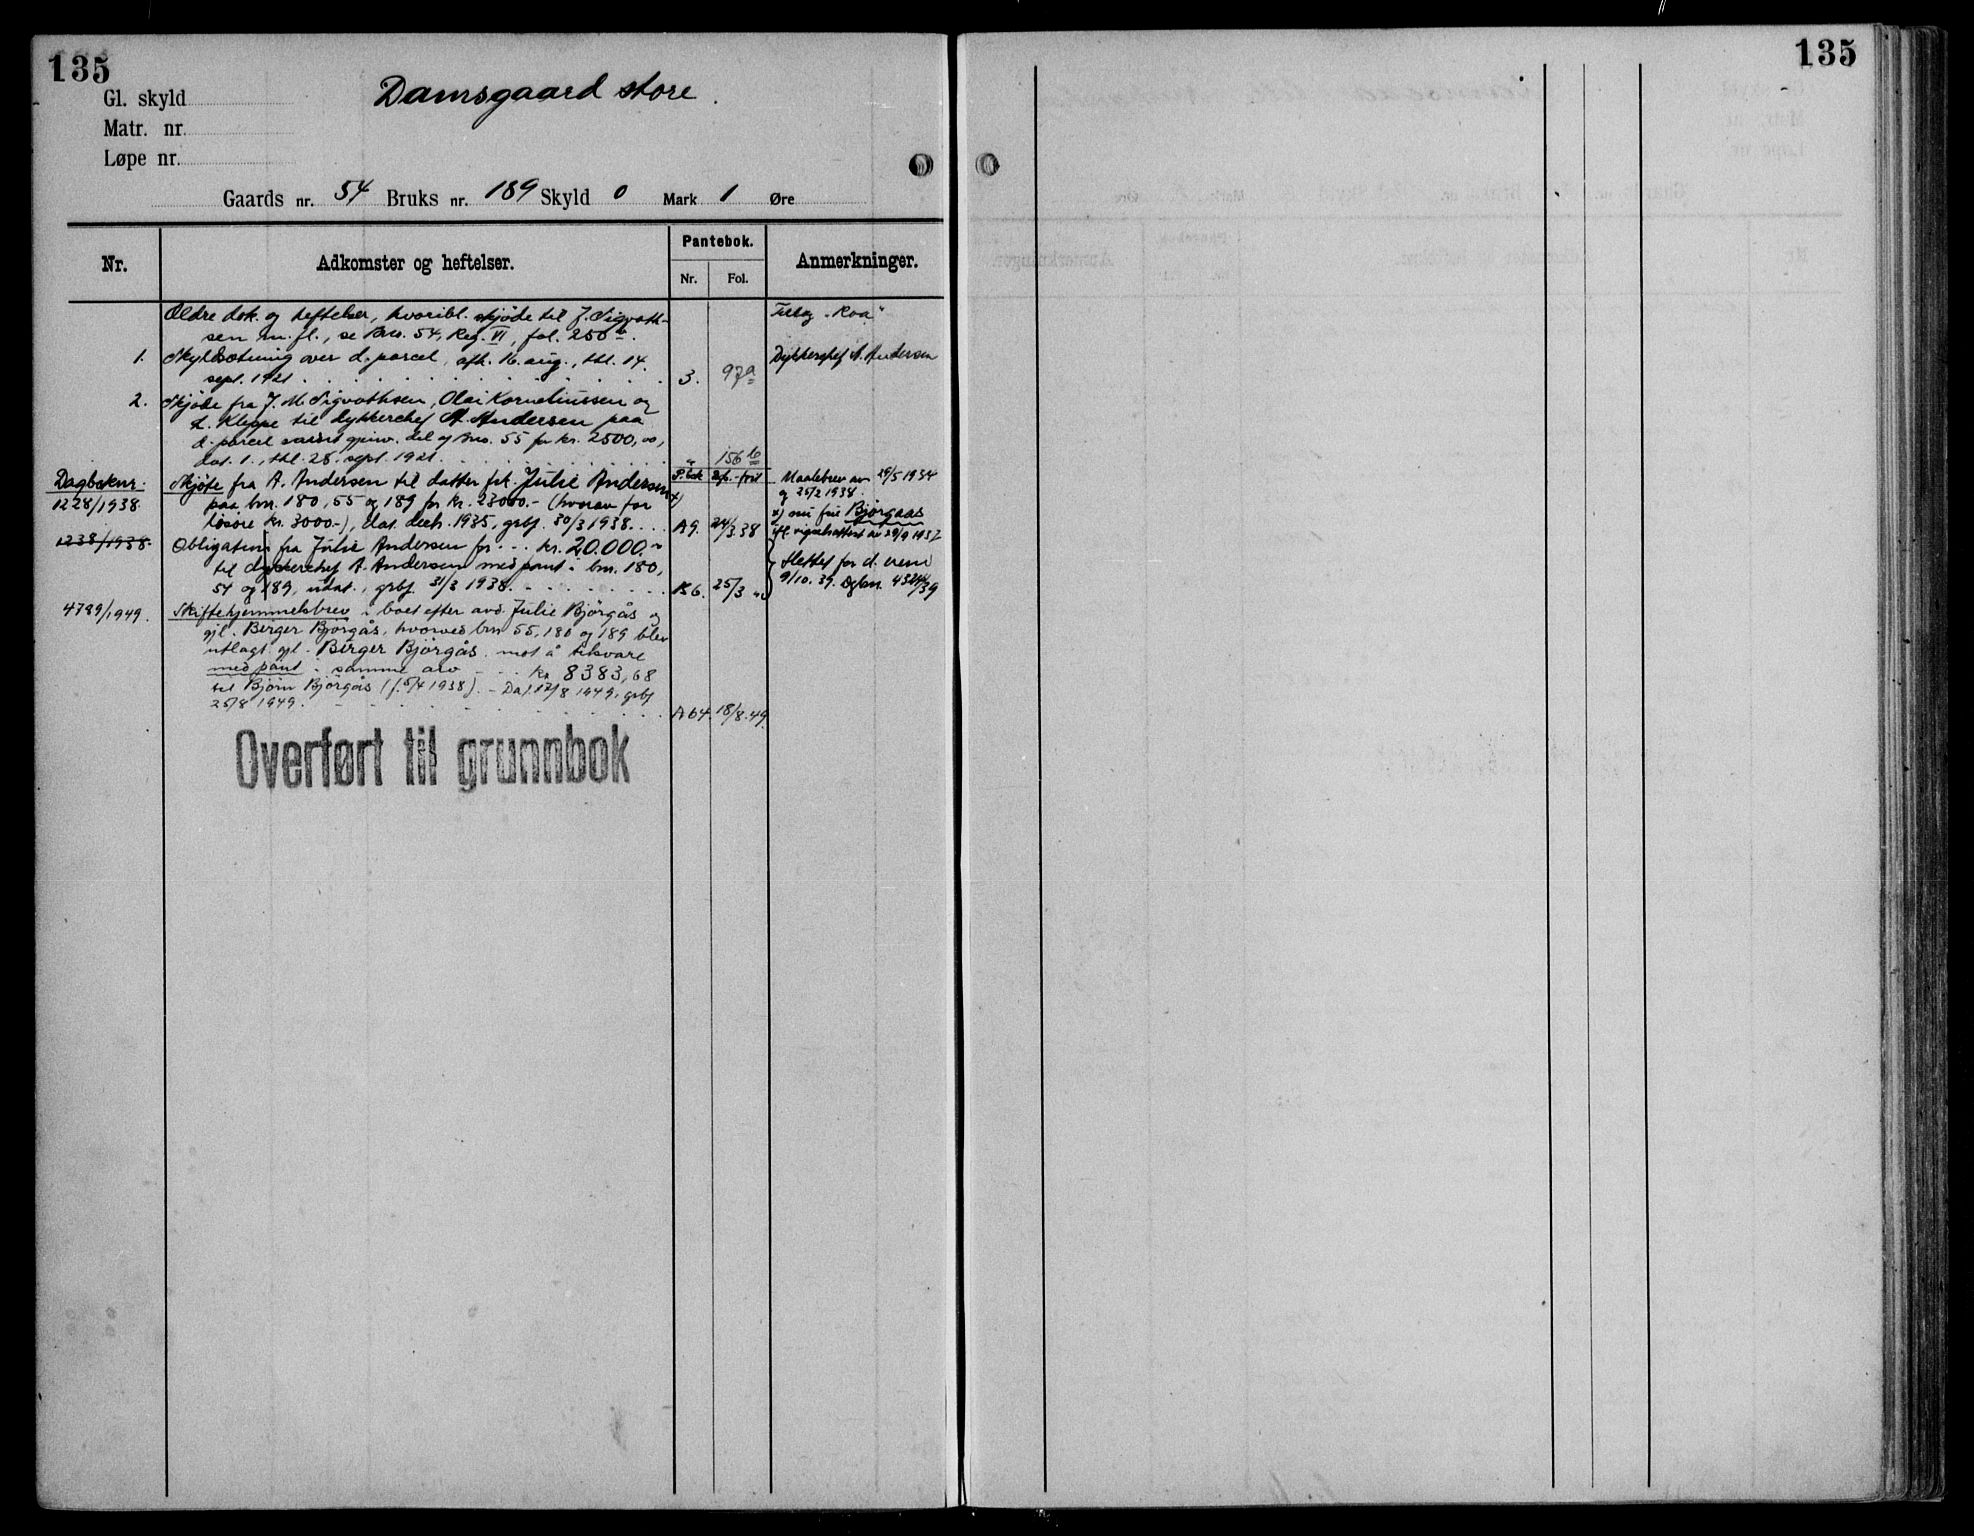 135
Gl. skyld
Damsgaard store.
Matr. nr.
Løpe nr.
Gaards nr. 54 Bruks nr. 189 Skyld 0 Mark 1 Øre
Nr.
Adkomster og heftelser.
Pantebok.
Nr. Fol.
Anmerkninger.
Ældre dok. og heftelser, hvoribl. skjøde til J. Sigvath-
sen m. fl., se Bno. 54, Reg. VI, fol. 250 b.
Tillæg "Roa"
1. Skyldsætning over d. parcel, afh. 16. aug., thl. 14.
sept. 1921 3. 97a
Dykkerchef A. Andersen
2. Skjøde fra J. M. Sigvathsen, Olai Korneliussen og
L. Kleppe til dykkerchef A. Andersen paa
d. parcel samt gjenv. del af Bno. 55 for kr. 2500,00,
dat. 1., thl. 28. sept. 1921 " 156 b
Dagboknr. P.bok
1228/1938 Skjøte fra A. Andersen til datter frk. Julie Andersen x)
paa bnr. 180, 55 og 189 for kr. 23000.- (hvorav for
løsøre kr. 3000.-), dat. decb. 1935, grbf. 30/3 1938. A9. 24/3.38
Maalebrev av 29/5 1934
og 25/2 1938.
x) nu frue Bjørgaas
ifl. vigselsattest av 29/9 1937
1238/1938. Obligation fra Julie Andersen for kr. 20.000.-
til dykkerchef A. Andersen med pant i bnr. 180,
54 og 189, udat., grbf. 31/3 1938. B6. 25/3 "
Slettet for d. eiend.
9/10. 39. Dgbnr. 4324/39
4789/1949. Skiftehjemmelsbrev i boet efter avd. Julie Bjørgås og
gjl. Berger Bjørgås, hvorved bnr 55, 180 og 189 blev
utlagt gjl. Berger Bjørgås mot å tilsvare
med pant i samme arv kr 8383,68
til Bjørn Bjørgås (f. 5/4 1938). - Dat. 17/8 1949, grbf
25/8 1949. A64. 18/8.49.
Overført til grunnbok
135